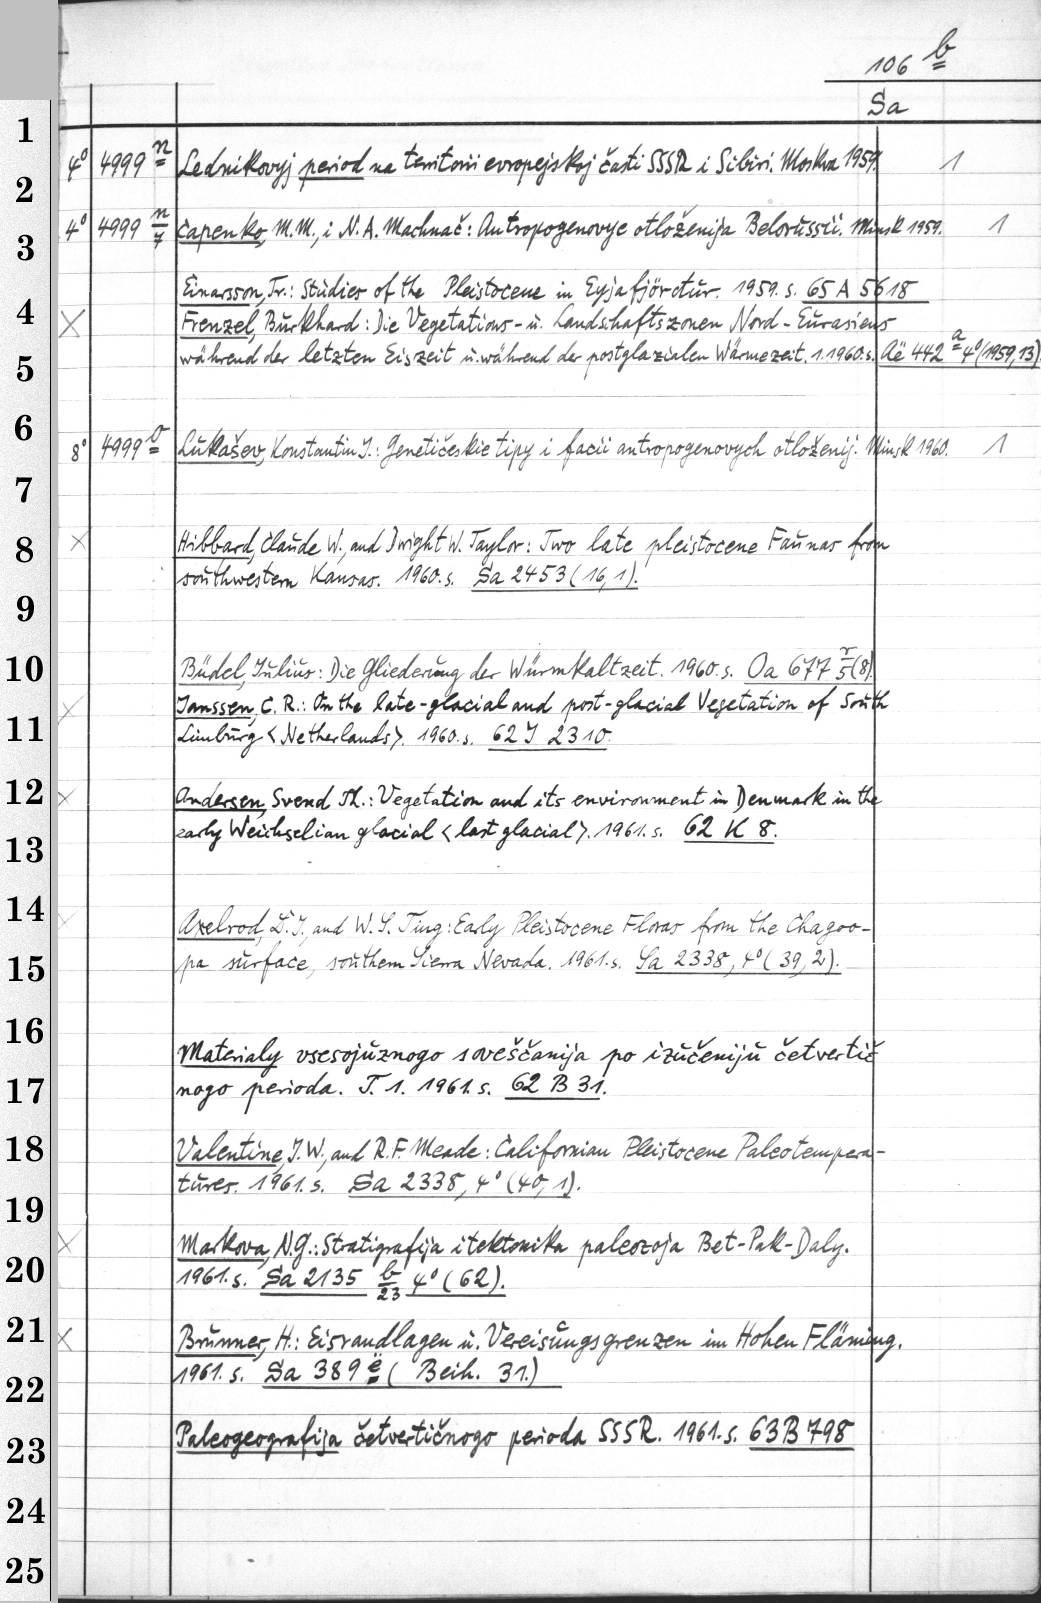 106 b
Sa
1
4° 4999 n Lednikovyj period na territorii evropejskoj časti SSSR i Sibiri. Moskva 1959. 1
2
4° 4999 n/7 Capenko, M.M., i N.A. Machnač: Antropogenovye otloženija Belorussii. Minsk 1959. 1
3
Einarsson, Tr.: Studies of the Pleistocene in Eyjafjörđur. 1959. s. 65 A 5618
4
Frenzel, Burkhard: Die Vegetations- u. Landschaftszonen Nord-Eurasiens
während der letzten Eiszeit u. während der postglazialen Wärmezeit. 1. 1960. s. Aë 442 a 4° (1959,13).
5
6
8° 4999 o Lukašev, Konstantin I.: Genetičeskie tipy i facii antropogenovych otloženij. Minsk 1960. 1
7
8
Hibbard, Claude W., and Dwight W. Taylor: Two late pleistocene Faunas from
southwestern Kansas. 1960. s. Sa 2453 (16,1).
9
10
Büdel, Julius: Die Gliederung der Würmkaltzeit. 1960. s. Oa 677 r/5 (8).
Janssen, C. R.: On the late-glacial and post-glacial Vegetation of South
11
Limburg <Netherlands>. 1960. s. 62 J 2310.
12
Andersen, Svend Th.: Vegetation and its environment in Denmark in the
early Weichselian glacial <last glacial>. 1961. s. 62 K 8.
13
14
Axelrod, D. I., and W. S. Ting: Early Pleistocene Floras from the Chagoo-
15
pa surface, southern Sierra Nevada. 1961. s. Sa 2338, 4° (39, 2).
16
Materialy vsesojuznogo soveščanija po izučeniju četvertič
17
nogo perioda. T. 1. 1961. s. 62 B 31.
18
Valentine, J. W., and R. F. Meade: Californian Pleistocene Paleotempera-
tures. 1961. s. Sa 2338, 4° (40, 1).
19
Markova, N. G.: Stratigrafija i tektonika paleozoja Bet-Pak-Daly.
20
1961. s. Sa 2135 b/23 4° (62).
21
Brunner, H.: Eisrandlagen u. Vereisungsgrenzen im Hohen Fläming.
22
1961. s. Sa 389 ë (Beih. 31.)
23
Paleogeografija četvertičnogo perioda SSSR. 1961. s. 63 B 798
24
25